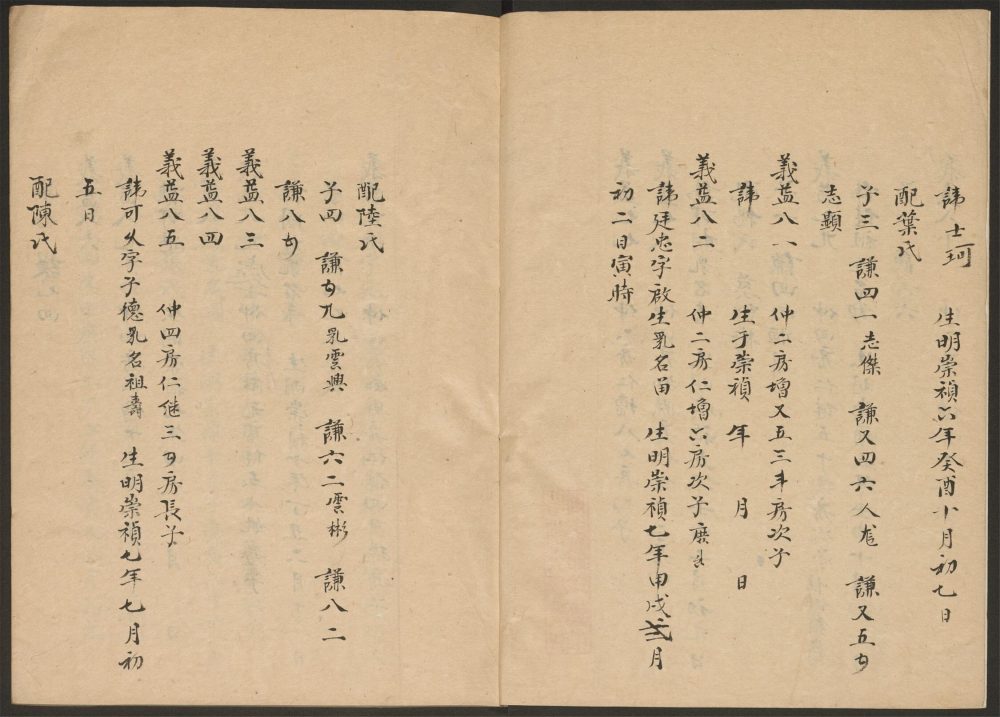 諱士珂 生明崇禎六年癸酉十月初七日
配葉氏
子三 謙四一志傑 謙又四六人 謙又五
志顯
義益八一 仲二房增又五三房次子
諱 生于崇禎 年 月 日
義益八二 仲二房仁增六房次子
諱廷忠字啟生乳名 生明崇禎七年甲戌 月
初二日寅時
配陸氏
子四 謙 九乳雲興 謙六二雲彬 謙八二
謙八
義益八三
義益八四
義益八五 仲四房仁继三 房長子
諱可 字子德乳名祖壽 生明崇禎七年七月初
五日
配陳氏